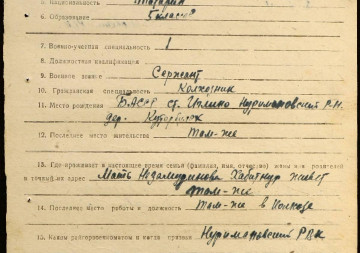 5. Национальность Татарин
6. Образование 5 класс
7. Военно-учетная специальность 1
8. Должностная квалификация
9. Военное звание Сержант
10. Гражданская специальность Колхозник
11. Место рождения БАСС ст. Иглино Нуримановский Р-н.
дер.
12. Последнее место жительства там-же
13. Где проживает в настоящее время семья (фамилия, имя, отчество) жены или родителей
и точный их адрес Мать
там-же
14. Последнее место работы и должность там-же в колхозе
15. Каким райгорвоенкоматом и когда призван Нуримановский РВК